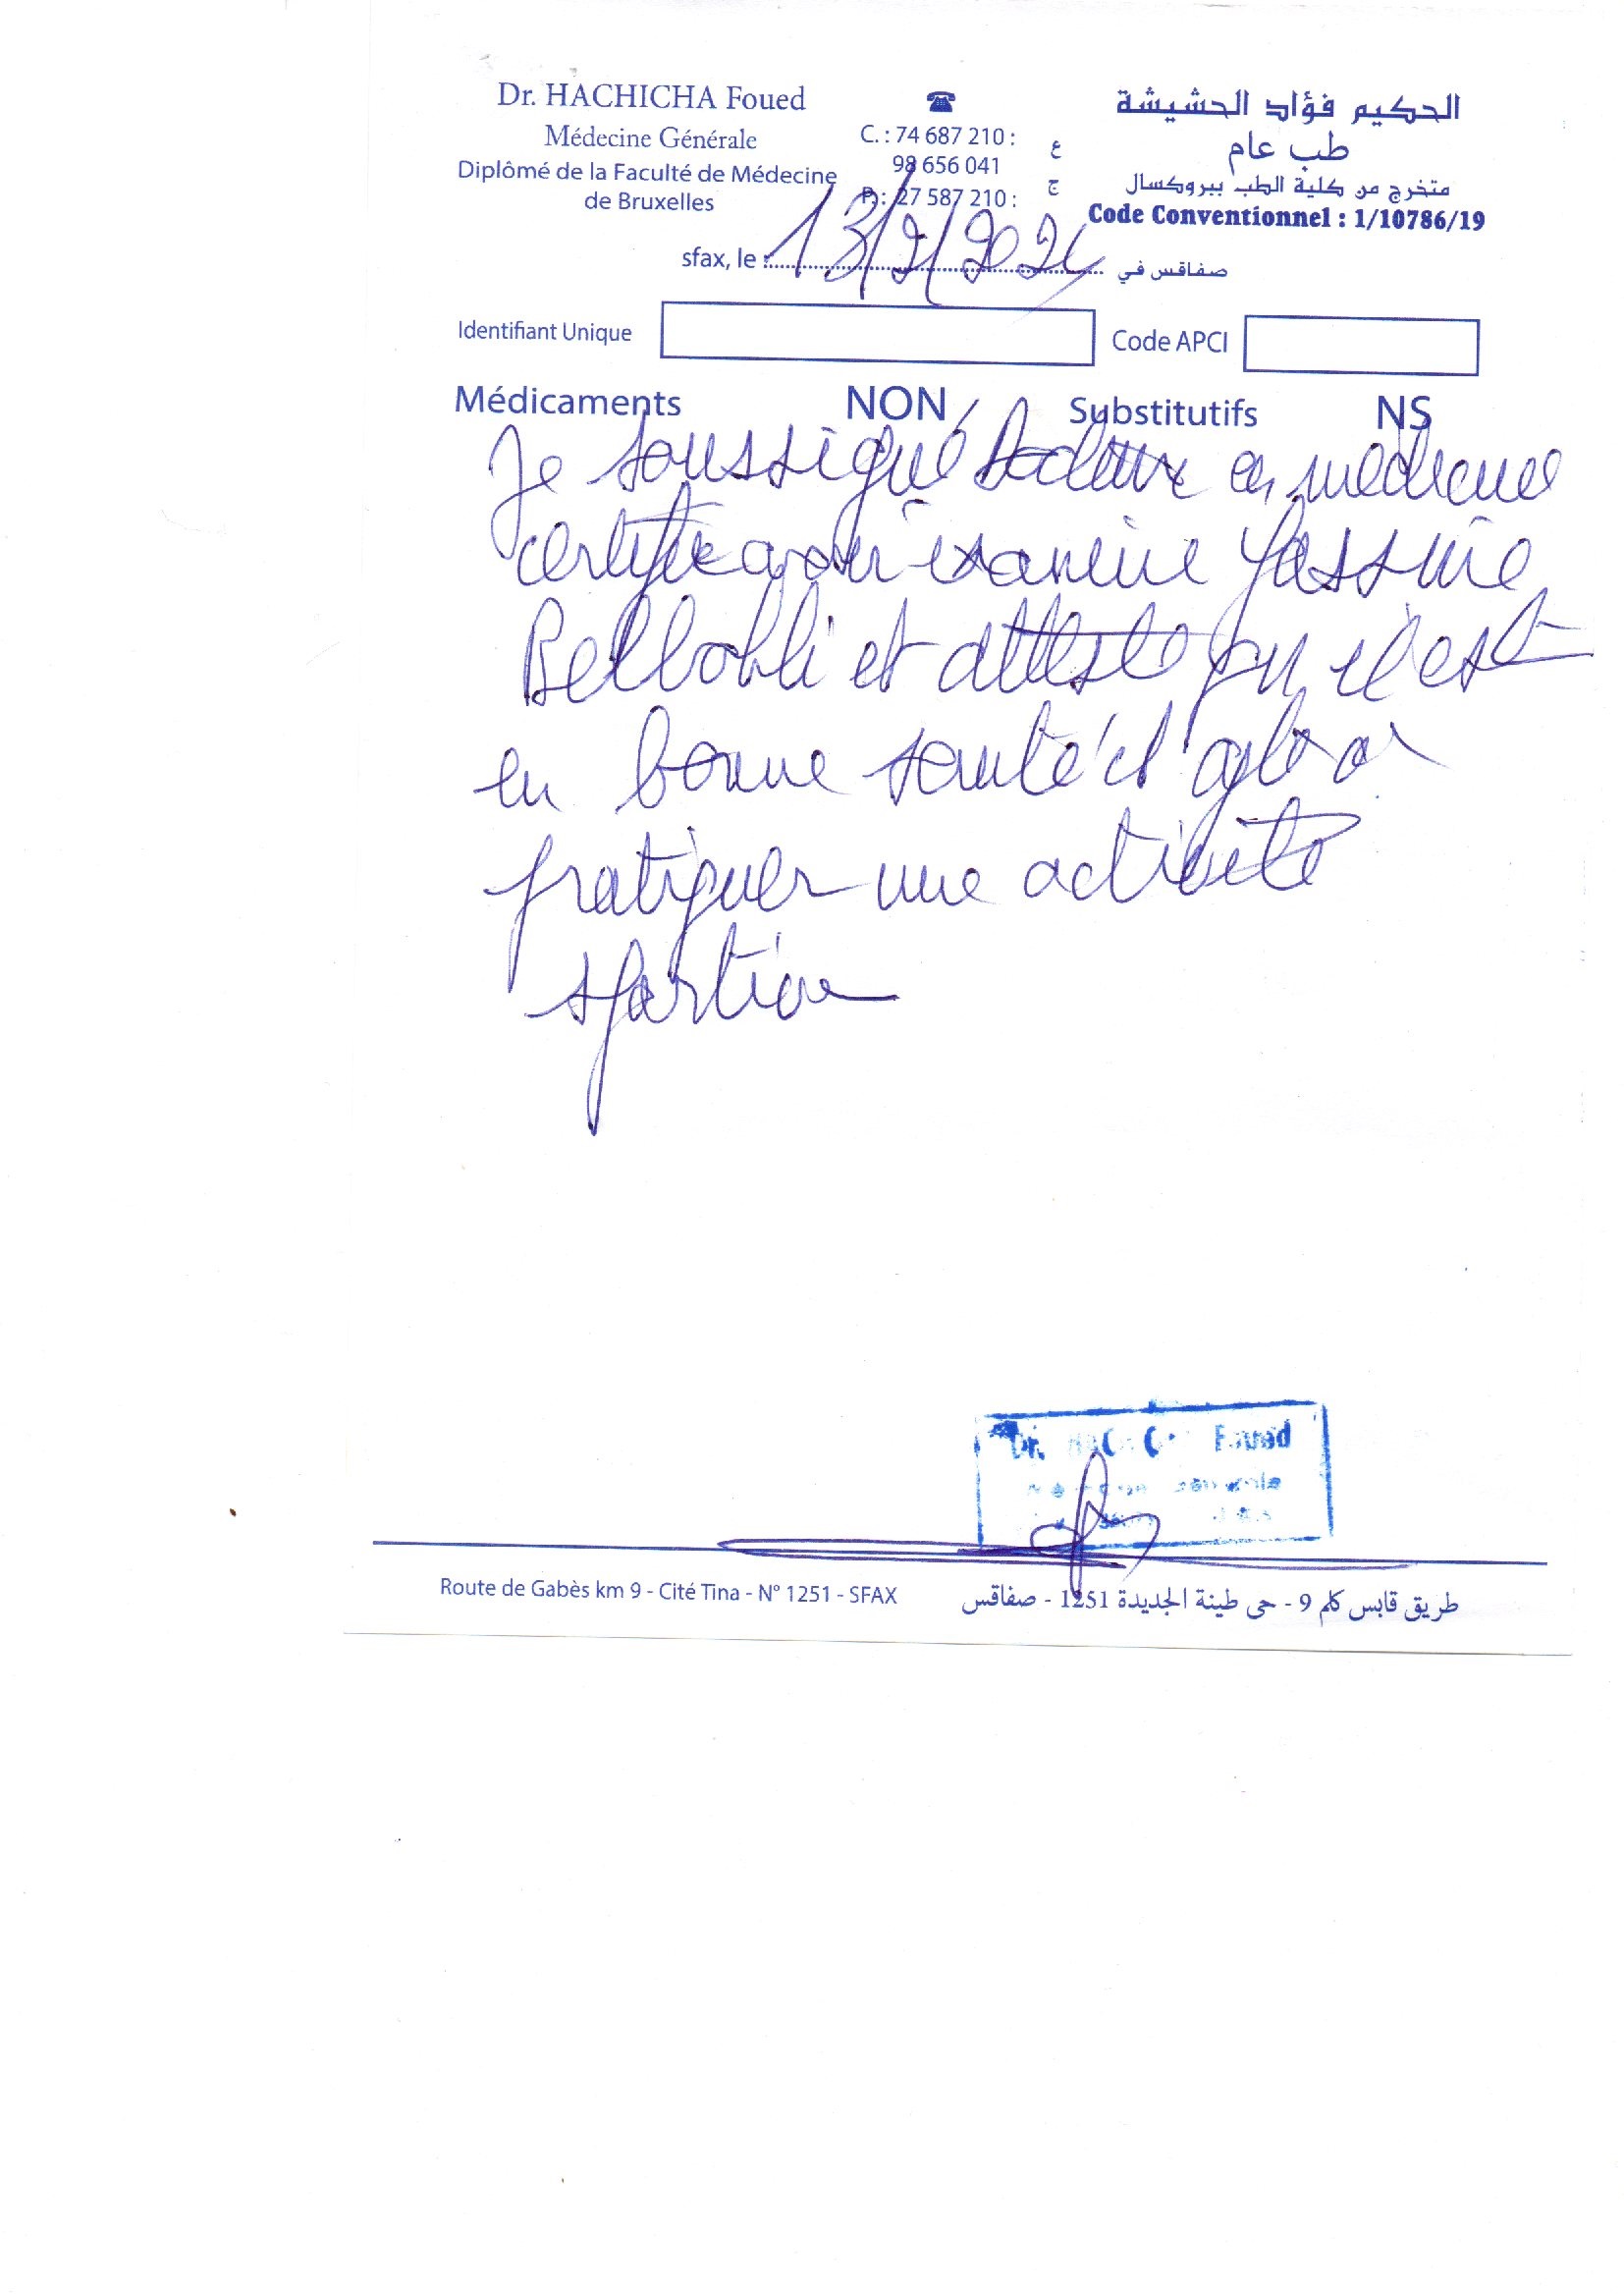 Dr. HACHICHA Foued
Médecine Générale
Diplômé de la Faculté de Médecine
de Bruxelles
C. : 74 687 210 : ع
98 656 041
P. : 27 587 210 : ج
الحكيم فؤاد الحشيشة
طب عام
متخرج من كلية الطب ببروكسال
Code Conventionnel : 1/10786/19
sfax, le : 13/2/2024 صفاقس في
Identifiant Unique Code APCI
Médicaments NON Substitutifs NS
Je soussigné Docteur en médecine
certifie avoir examiné Yassine
et atteste qu'il est
en bonne santé et apte à
pratiquer une activité
sportive
Dr. Foued
Route de Gabès km 9 - Cité Tina - N° 1251 - SFAX
طريق قابس كلم 9 - حي طينة الجديدة 1251 - صفاقس